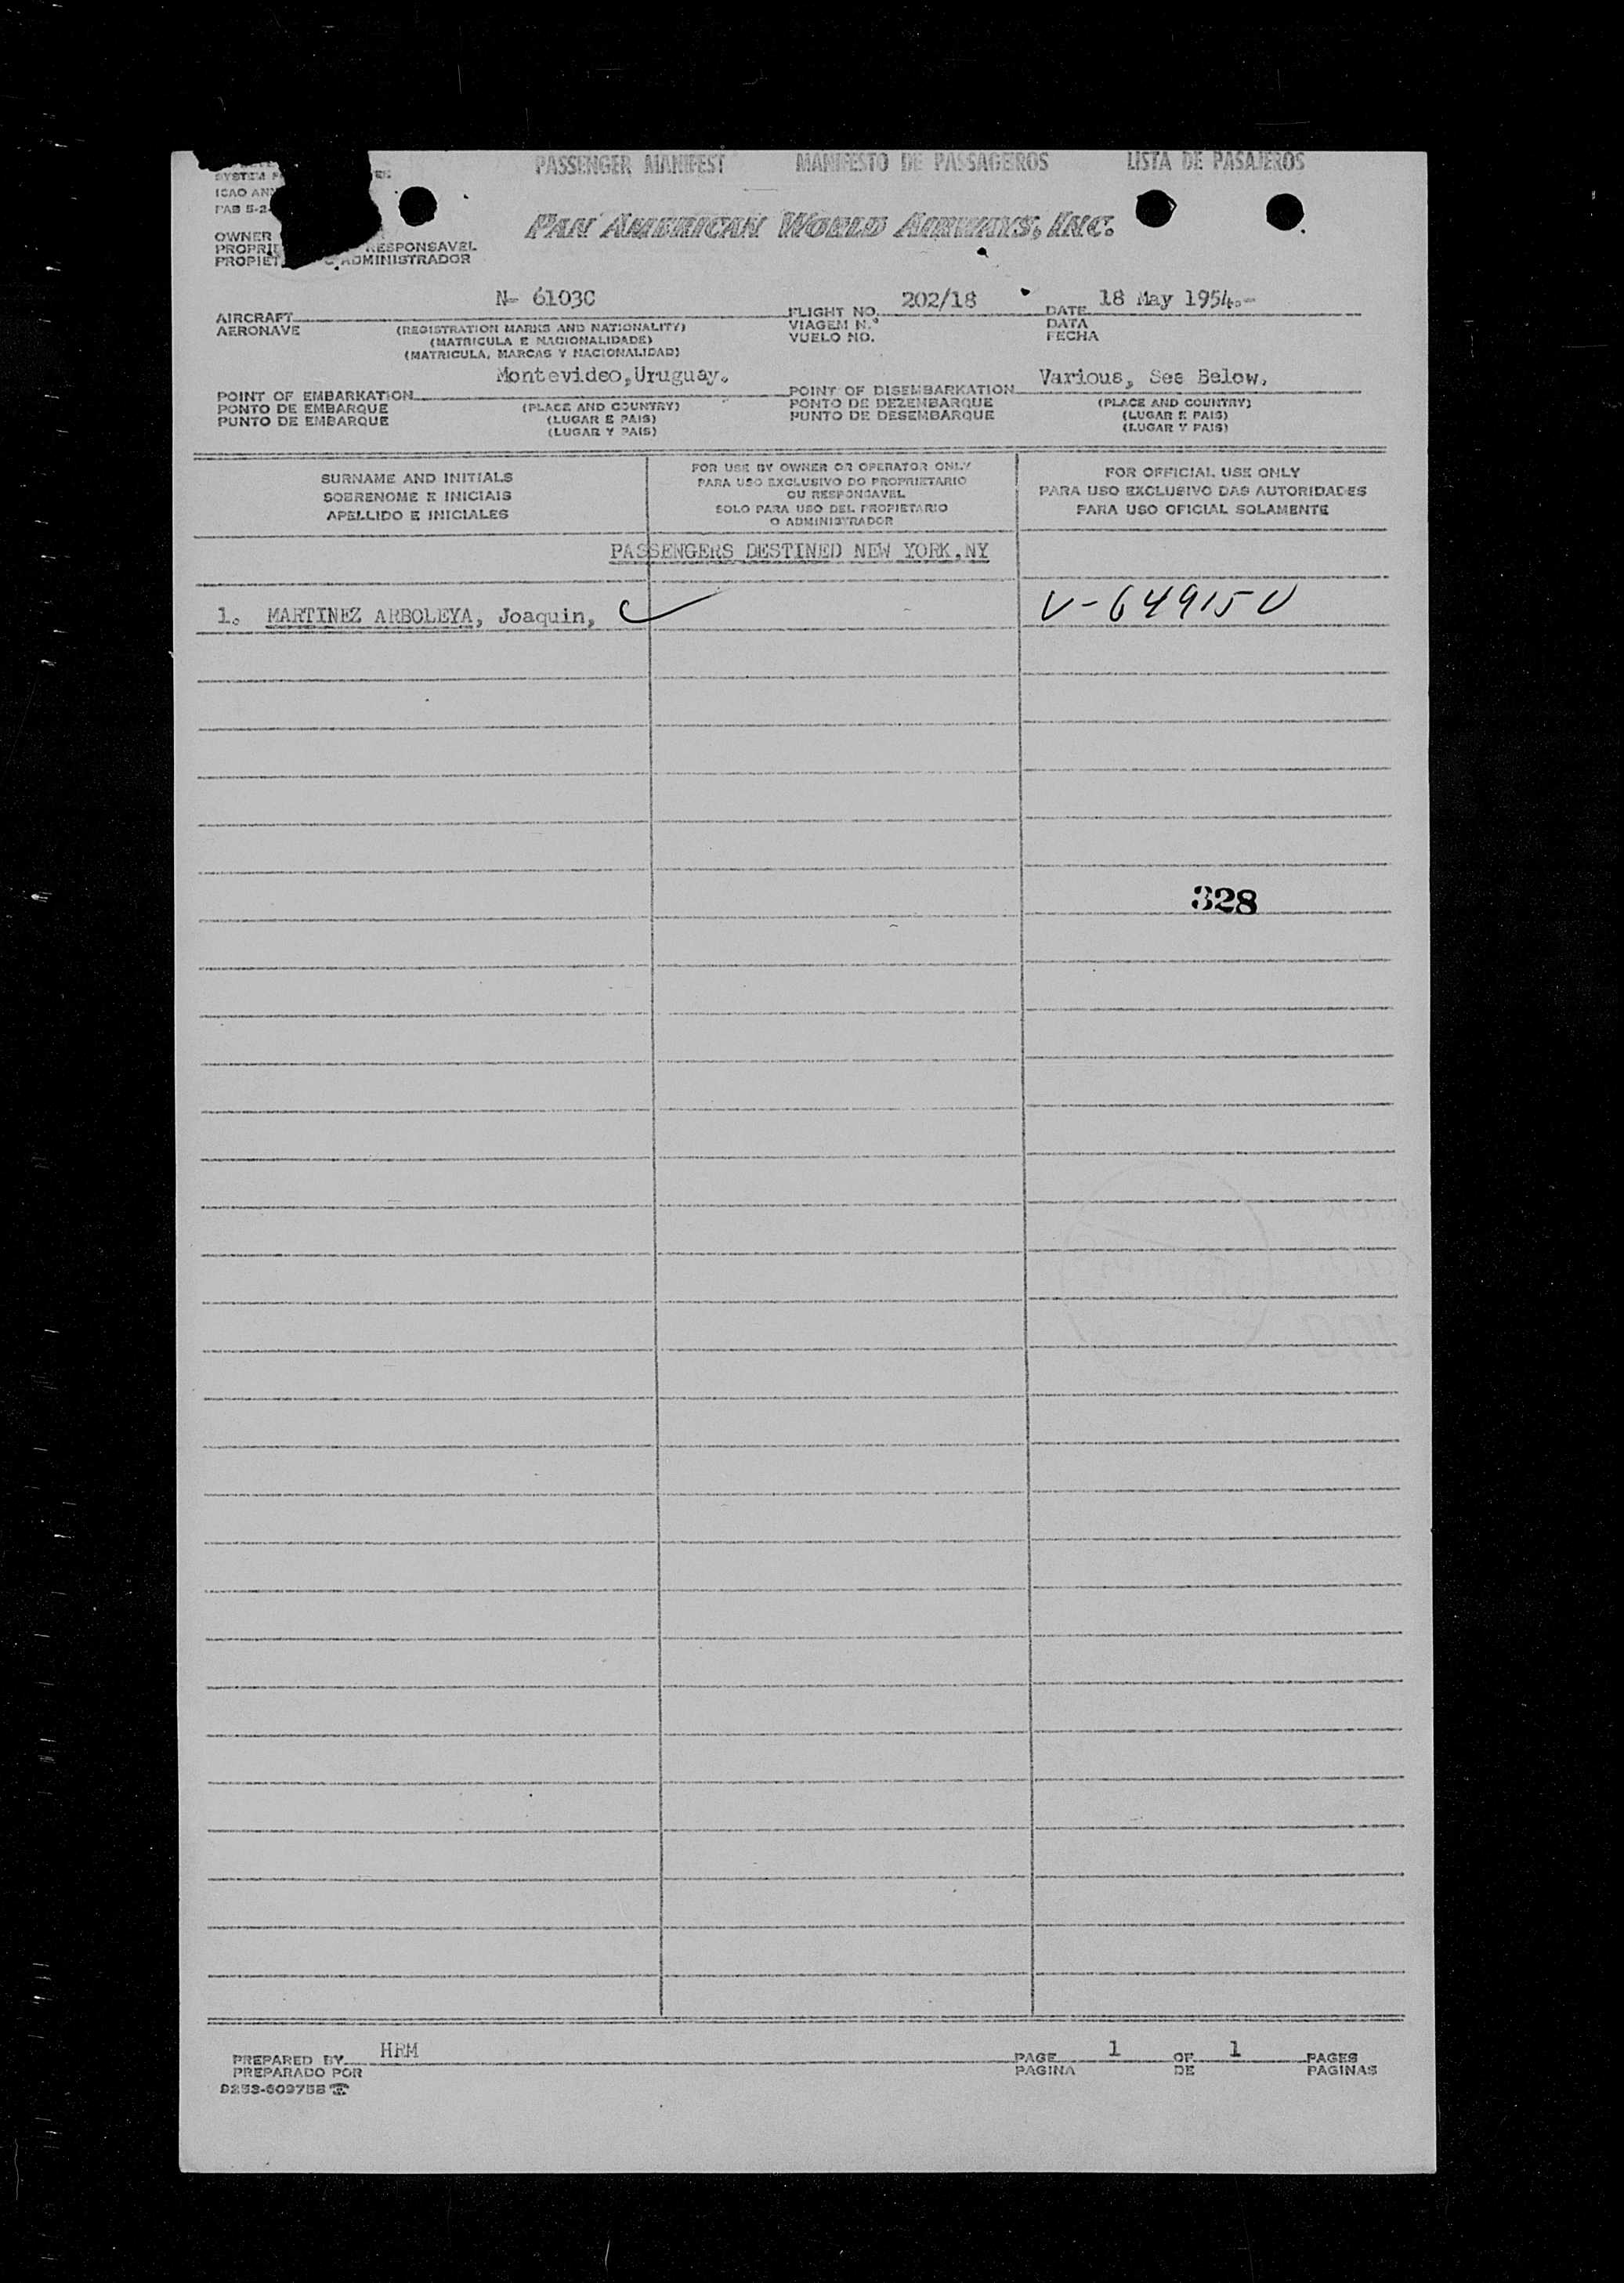 PASSENGER MANIFEST MANIFESTO DE PASSAGEIROS LISTA DE PASAJEROS
SYSTEM
ICAO
OWNER
PROPRIE RESPONSAVEL
PROPIET ADMINISTRADOR
PAN AMERICAN WORLD AIRWAYS, INC.
N- 6103C 202/18 18 May 1954.-
AIRCRAFT FLIGHT NO. DATE
AERONAVE (REGISTRATION MARKS AND NATIONALITY) VIAGEM N.º DATA
(MATRICULA E NACIONALIDADE) VUELO NO. FECHA
(MATRICULA, MARCAS Y NACIONALIDAD)
Montevideo,Uruguay. Various, See Below.
POINT OF EMBARKATION POINT OF DISEMBARKATION
PONTO DE EMBARQUE (PLACE AND COUNTRY) PONTO DE DEZEMBARQUE (PLACE AND COUNTRY)
PUNTO DE EMBARQUE (LUGAR E PAIS) PUNTO DE DESEMBARQUE (LUGAR E PAIS)
(LUGAR Y PAIS) (LUGAR Y PAIS)
SURNAME AND INITIALS
SOBRENOME E INICIAIS
APELLIDO E INICIALES
FOR USE BY OWNER OR OPERATOR ONLY
PARA USO EXCLUSIVO DO PROPRIETARIO
OU RESPONSAVEL
SOLO PARA USO DEL PROPIETARIO
O ADMINISTRADOR
FOR OFFICIAL USE ONLY
PARA USO EXCLUSIVO DAS AUTORIDADES
PARA USO OFICIAL SOLAMENTE
PASSENGERS DESTINED NEW YORK,NY
1. MARTINEZ ARBOLEYA, Joaquin, V-649150
328
HRM 1 1
PREPARED BY PAGE OF PAGES
PREPARADO POR PAGINA DE PAGINAS